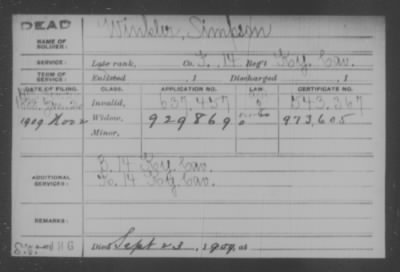 DEAD
NAME OF SOLDIER: Winkler, Simpson
SERVICE: Late rank, Co. F. 14 Reg't Ky. Cav.
TERM OF SERVICE: Enlisted , 1 Discharged , 1
DATE OF FILING. CLASS. APPLICATION NO. LAW. CERTIFICATE NO.
1888 Invalid, 637,457 543,367
1909 Nov 2 Widow, 929869 973,605
Minor,
ADDITIONAL SERVICES: B. 14 Ky. Cav.
14 Ky Cav.
REMARKS:
Died Sept 23, 1909, at